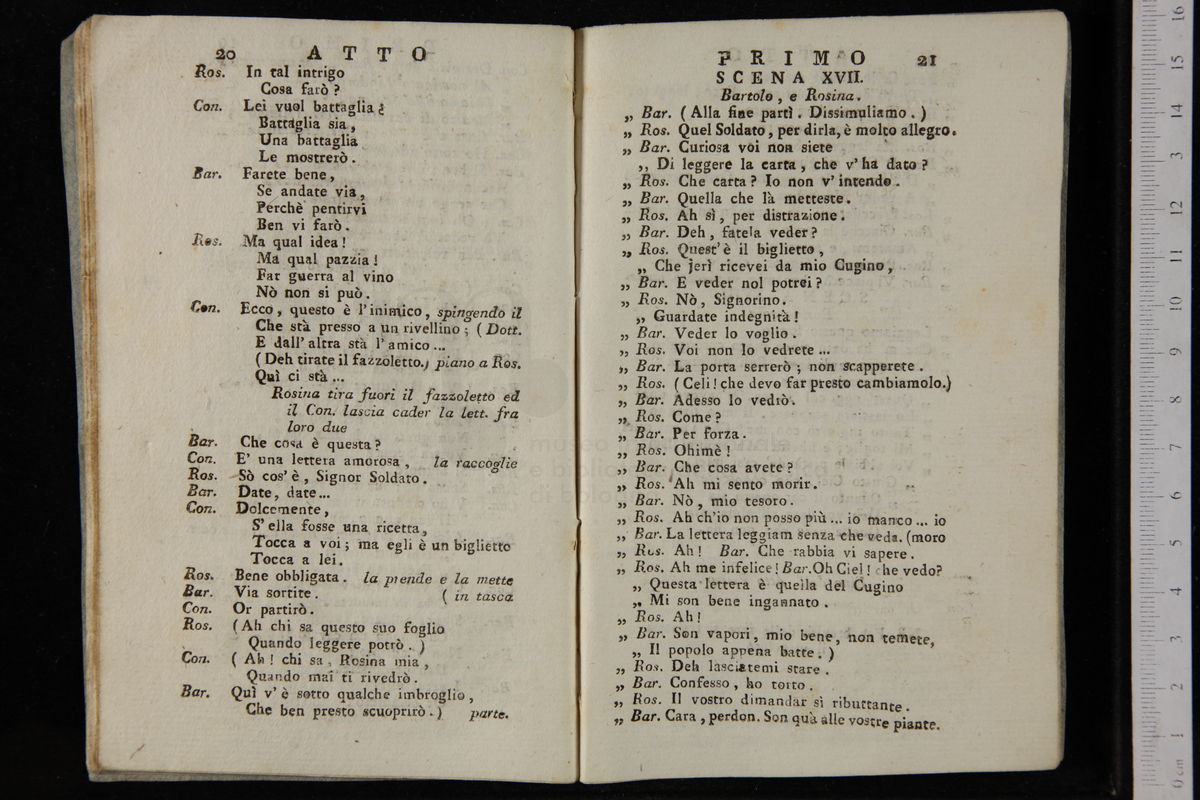 20 ATTO
Ros. In tal intrigo
Cosa farò ?
Con. Lei vuol battaglia ?
Battaglia sia,
Una battaglia
Le mostrerò.
Bar. Farete bene,
Se andate via,
Perchè pentirvi
Ben vi farò.
Ros. Ma qual idea!
Ma qual pazzia!
Far guerra al vino
Nò non si può.
Con. Ecco, questo è l'inimico, spingendo il
Che stà presso a un rivellino; ( Dott.
E dall'altra stà l'amico ...
( Deh tirate il fazzoletto.) piano a Ros.
Quì ci stà ...
Rosina tira fuori il fazzoletto ed
il Con. lascia cader la lett. fra
loro due
Bar. Che cosa è questa?
Con. E' una lettera amorosa, la raccoglie
Ros. Sò cos'è, Signor Soldato.
Bar. Date, date...
Con. Dolcemente,
S'ella fosse una ricetta,
Tocca a voi; ma egli è un biglietto
Tocca a lei.
Ros. Bene obbligata. la prende e la mette
Bar. Via sortite. ( in tasca
Con. Or partirò.
Ros. (Ah chi sa questo suo foglio
Quando leggere potrò. )
Con. ( Ah! chi sa, Rosina mia,
Quando mai ti rivedrò.
Bar. Quì v'è sotto qualche imbroglio,
Che ben presto scuoprirò.) parte.
PRIMO 21
SCENA XVII.
Bartolo, e Rosina.
„ Bar. ( Alla fine partì. Dissimuliamo. )
„ Ros. Quel Soldato, per dirla, è molto allegro.
„ Bar. Curiosa voi non siete
,, Di leggere la carta, che v'ha dato ?
„ Ros. Che carta? Io non v'intendo.
„ Bar. Quella che là metteste.
„ Ros. Ah sì, per distrazione.
„ Bar. Deh, fatela veder?
„ Ros. Quest'è il biglietto,
„ Che jerì ricevei da mio Cugino,
„ Bar. E veder nol potrei?
„ Ros. Nò, Signorino.
„ Guardate indegnità!
„ Bar. Veder lo voglio.
„ Ros. Voi non lo vedrete ...
„ Bar. La porta serrerò; non scapperete.
„ Ros. ( Celi! che devo far presto cambiamolo.)
„ Bar. Adesso lo vedrò.
„ Ros. Come?
„ Bar. Per forza.
„ Ros. Ohimè!
„ Bar. Che cosa avete?
„ Ros. Ah mi sento morir.
„ Bar. Nò, mio tesoro.
„ Ros. Ah ch'io non posso più ... io manco ... io
„ Bar. La lettera leggiam senza che veda. (moro
„ Ros. Ah! Bar. Che rabbia vi sapere.
„ Ros. Ah me infelice! Bar. Oh Ciel! che vedo?
„ Questa lettera è quella del Cugino
„ Mi son bene ingannato.
„ Ros. Ah!
„ Bar. Son vapori, mio bene, non temete,
„ Il popolo appena batte. )
„ Ros. Deh lasciatemi stare.
„ Bar. Confesso, ho torto.
„ Ros. Il vostro dimandar sì ributtante.
„ Bar. Cara, perdon. Son quà alle vostre piante.